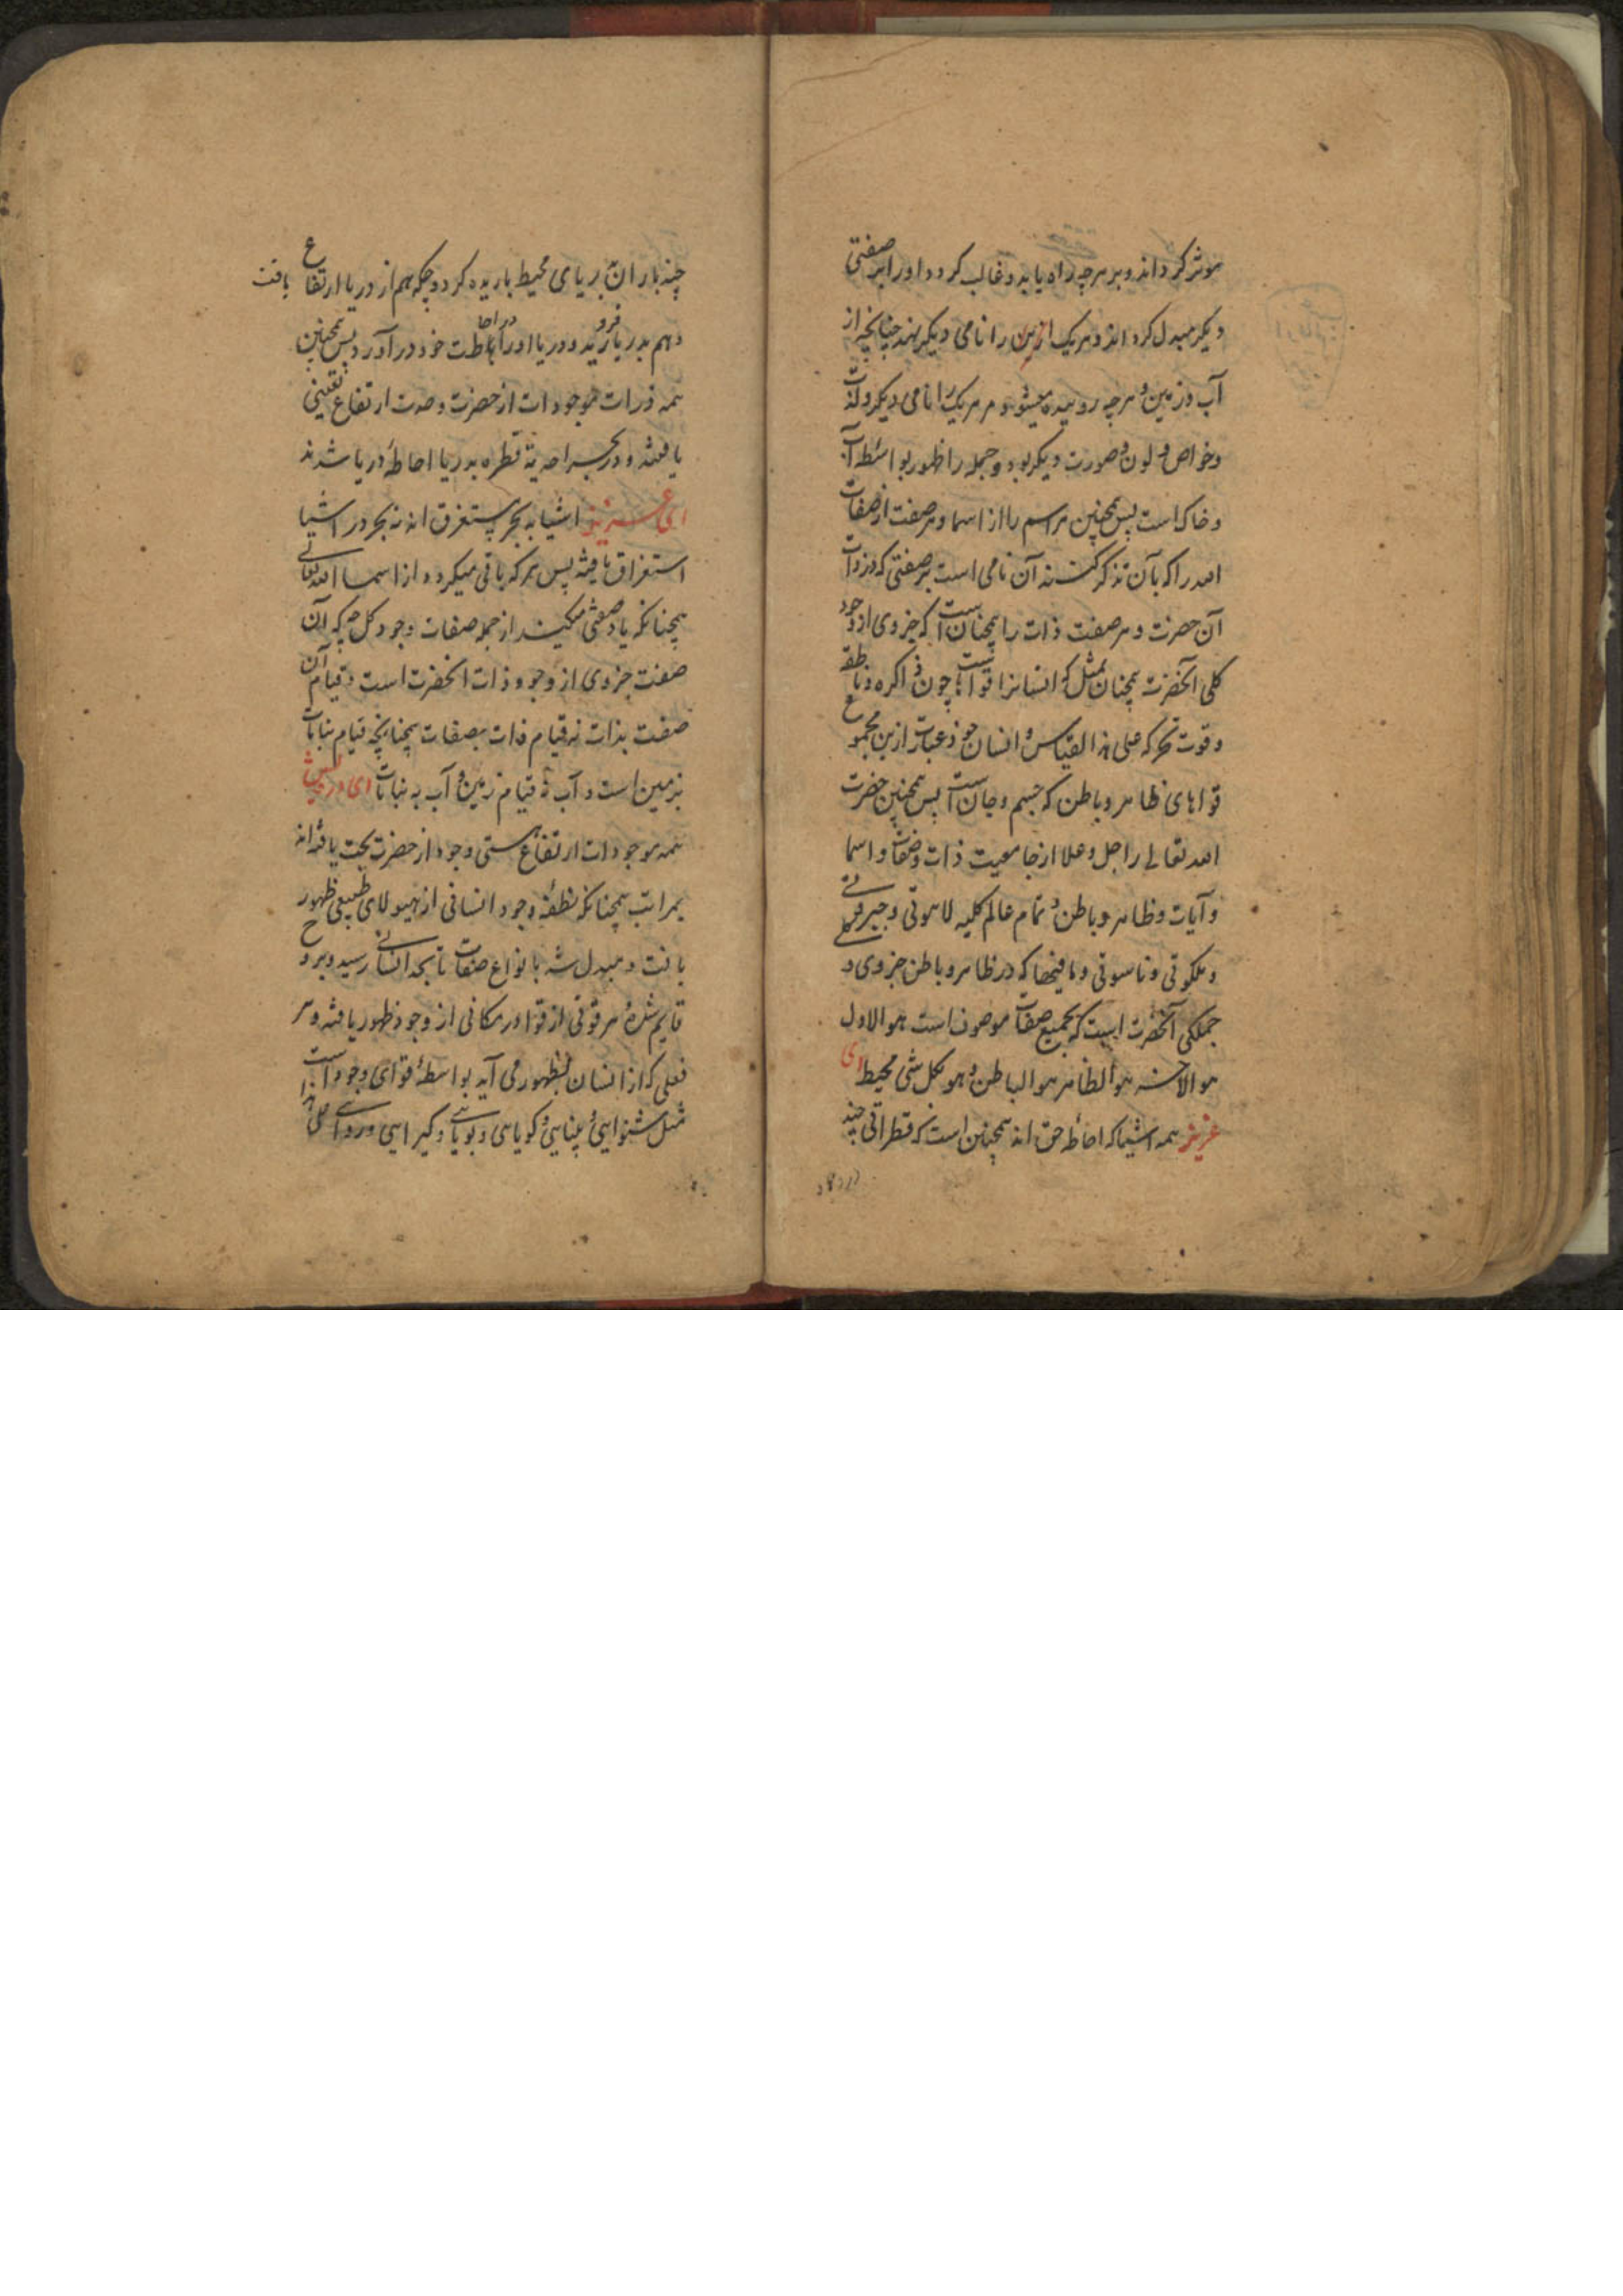 موثر کرداند و بر هرچه راه یابد و غالب کردد اورا بر صفتی
دیکر مبدل کرداند و هریک ازین را نامی دیکر نهند چنانچه از
آب و زمین و هرچه روئیده میشود مر هریک را نامی دیکر و لذت
و خواص و لون و صورت دیکر بود و جمله را ظهور بواسطه آب
و خاک است پس همچنین هر اسم را از اسما و هر صفت از صفات
الله را که بآن ذکر کنند آن نامی است بر صفتی که در ذات
آن حضرت و هر صفت ذات را همچنان است که جزوی از وجود
کلی آنحضرت همچنان بمثل که انسانرا قواهاست چون ذاکره و ناطقه
و قوت محرکه علی هذا القیاس و انسان خود عبارت ازین مجموع
قواهای ظاهر و باطن که جسم و جان است پس همچنین حضرت
الله تعالی را جل و علا از جامعیت ذات و صفات و اسما
و آیات و ظاهر و باطن و تمام عالم کلیه لاهوتی و جبروتی
و ملکوتی و ناسوتی و مافیها که در ظاهر و باطن جزوی و کلی
جملکی آنحضرت است که بجمیع صفات موصوف است هو الاول
هو الآخر هو الظاهر هو الباطن و هو بکل شی محیط ای
عزیز همه اشیا که احاطه حق اند همچنین است که قطراتی چند
چند باران بر دریای محیط باریده کردد چه که هم از دریا ارتفاع یافت
و هم بدریا فرو رسید و دریا اورا در احاطت خود در آورد پس همچنین
همه ذرات موجودات از حضرت وحدت ارتفاع تعینی
یافتند و در بحر احدیة قطره بدریا احاطهٔ دریا شدند
ای عزیز اشیا به بحر مستغرق اند نه بحر در اشیا
استغراق یافته پس هر که باقی میکردد از اسما الله تعالی
همچنانکه یاد صفتی میکنند از جمله صفات وجود کل چه که آن
صفت جزوی از وجود ذات آنحضرت است و قیام آن
صفت بذات نه قیام ذات بصفات همچنانچه قیام نباتات
بزمین است و آب نه قیام زمین و آب به نباتات ای درویش
همه موجودات ارتفاع هستی وجود از حضرت بحت یافته اند
بمراتب همچنانکه نطفهٔ وجود انسانی از هیولای طبیعی ظهور
یافت و مبدل شد با نواع صفات تا بحد انسانی رسید و بروح
قایم شد و هر قوتی از قوا در مکانی از وجود ظهور یافته و هر
فعلی که از انسان بظهور می آید بواسطهٔ قوای وجود است
مثل شنوایی و بینایی و کویایی و بویائی و کیرایی و روائی